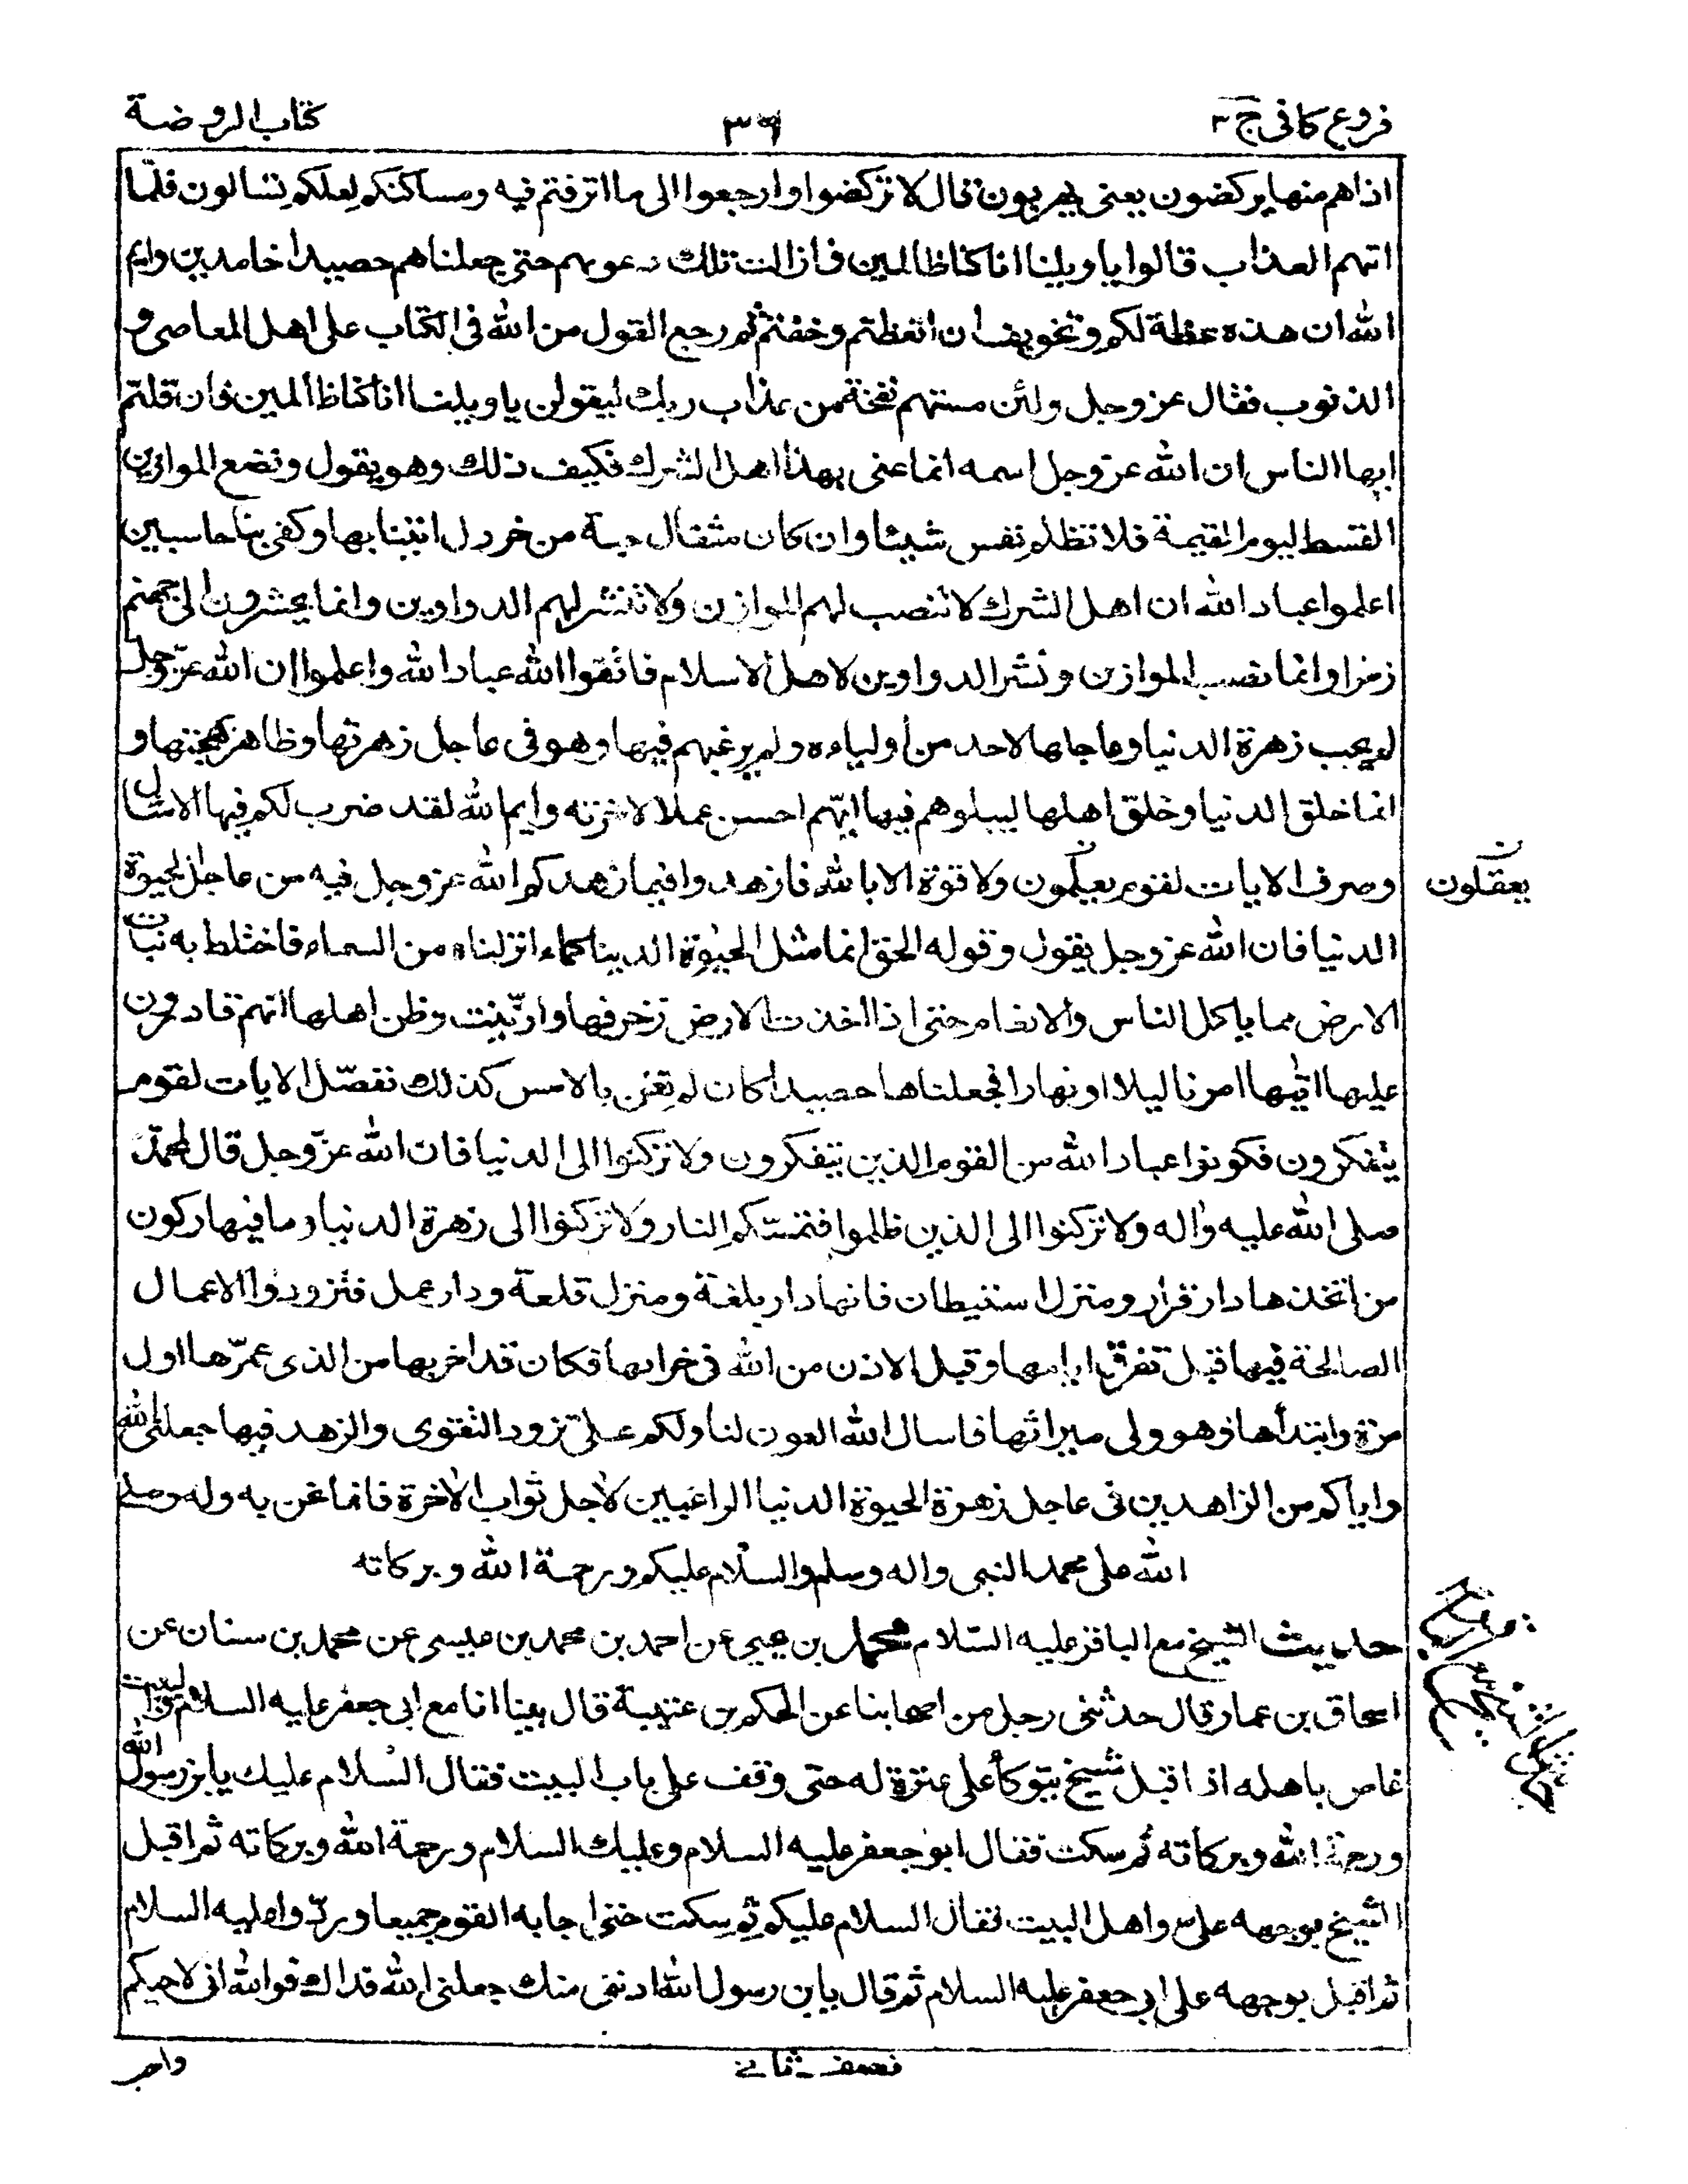 فروع كافى ج ٣
٣٦
كتاب الروضة
اذا هم منها يركضون يعنى يهربون قال لا تركضوا وارجعوا الى ما اترفتم فيه ومساكنكم لعلكم تسالون فلمّا
اتهم العذاب قالوا يا ويلنا انا كنا ظالمين فما زالت تلك دعوىهم حتى جعلناهم حصيدا خامدين وايم
الله ان هذه عظة لكم وتخويف ان اتعظتم وخفتم ثم رجع القول من الله فى الكتاب على اهل المعاصى و
الذنوب فقال عز وجل ولئن مستهم نفحة من عذاب ربك ليقولن يا ويلنا انا كنا ظالمين فان قلتم
ايها الناس ان الله عز وجل اسمه انما عنى بهذا اهل الشرك فكيف ذلك وهو يقول ونضع الموازين
القسط ليوم القيمة فلا تظلم نفس شيئا وان كان مثقال حبة من خردل اتينا بها وكفى بنا حاسبين
اعلموا عباد الله ان اهل الشرك لا تنصب لهم الموازين ولا تنشر لهم الدواوين وانما يحشرون الى جهنم
زمرا وانما نصب الموازين ونشر الدواوين لاهل الاسلام فاتقوا الله عباد الله واعلموا ان الله عزّ وجل
لم يحب زهرة الدنيا وعاجلها لاحد من اولياءه ولم يرغبهم فيها وهو فى عاجل زهرتها وظاهر بهجتها و
انما خلق الدنيا وخلق اهلها ليبلوهم فيها ايّهم احسن عملا لاخرته وايم الله لقد ضرب لكم فيها الامثال
وصرف الايات لقوم يعلمون ولا قوة الا بالله فازهدوا فيما زهدكم الله عز وجل فيه من عاجل الحيوة
يعقلون ن
الدنيا فان الله عز وجل يقول وقوله الحق انما مثل الحيوة الدنيا كماء انزلناه من السماء فاختلط به نبات
الارض مما ياكل الناس والانعام حتى اذا اخذت الارض زخرفها وازّينت وظن اهلها انهم قادرون
عليها اتيها امرنا ليلا او نهارا فجعلناها حصيدا كان لم تغن بالامس كذلك نفصّل الايات لقوم
يتفكرون فكونوا عباد الله من القوم الذين يتفكرون ولا تركنوا الى الدنيا فان الله عزّ وجل قال لمحمّد
صلى الله عليه واله ولا تركنوا الى الذين ظلموا فتمسّكم النار ولا تركنوا الى زهرة الدنيا وما فيها ركون
من اتخذها دار قرار ومنزل استيطان فانها دار بلغة ومنزل قلعة ودار عمل فتزودوا الاعمال
الصالحة فيها قبل تفرق ايامها وقبل الاذن من الله فى خرابها فكان قد اخربها من الذى عمرّها اول
مرة وابتدأها وهو ولى ميراثها فاسال الله العون لنا ولكم على تزود التقوى والزهد فيها جعلنا الله
واياكم من الزاهدين فى عاجل زهرة الحيوة الدنيا الراغبين لاجل ثواب الاخرة فانما نحن به وله وصلى
الله على محمد النبى واله وسلم والسلام عليكم ورحمة الله وبركاته
حديث الشيخ مع الباقر عليه السّلام محمد بن يحيى عن احمد بن محمد بن عيسى عن محمد بن سنان عن
اسحاق بن عمار قال حدثنى رجل من اصحابنا عن الحكم بن عتيبة قال بينا انا مع ابى جعفر عليه السلام والبيت
غاص باهله اذ اقبل شيخ يتوكأ على عنزة له حتى وقف على باب البيت فقال السّلام عليك يابن رسول الله
ورحمة الله وبركاته ثم سكت فقال ابو جعفر عليه السلام وعليك السلام ورحمة الله وبركاته ثم اقبل
الشيخ بوجهه على واهل البيت فقال السلام عليكم ثم سكت حتى اجابه القوم جميعا وردّوا عليه السلام
ثم اقبل بوجهه على ابى جعفر عليه السلام ثم قال يابن رسول الله ادننى منك جعلنى الله فداك فوالله انى لاحبكم
نصف ثانى
واحب